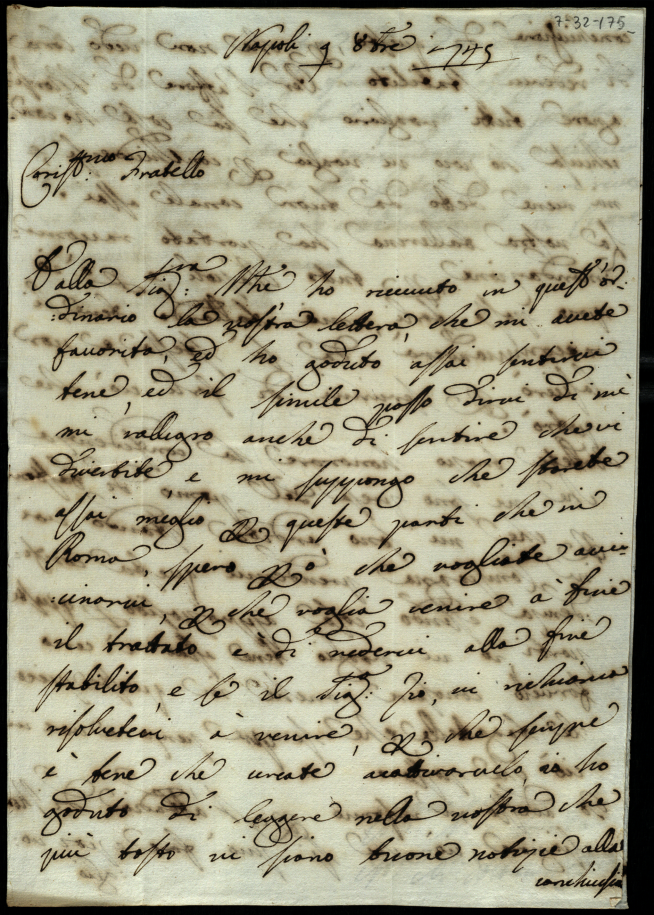 7-32-175
Napoli 9 8bre 1745
Cariss.mo Fratello
Dalla Sig.ra Mre ho ricevuto in quest'or-
:dinario la vostra lettera, che mi avete
favorita, ed ho goduto assai sentirvi
bene, ed il simile posso dirvi di mè
mi rallegro anche di sentire che vi
divertite, e mi suppongo che starete
assai meglio p queste parti che in
Roma, spero pò che vogliate avi-
:cinarvi, p che voglia venire à fine
il trattato e di vedervi alla fine
stabilito, e se il Sig.r Zio, vi richiama
risolvetevi à venire, p che sempre
è bene che cerate cattivarvelo, io ho
goduto di leggere nella vostra che
più tosto vi siano buone notizie alla
conclusio